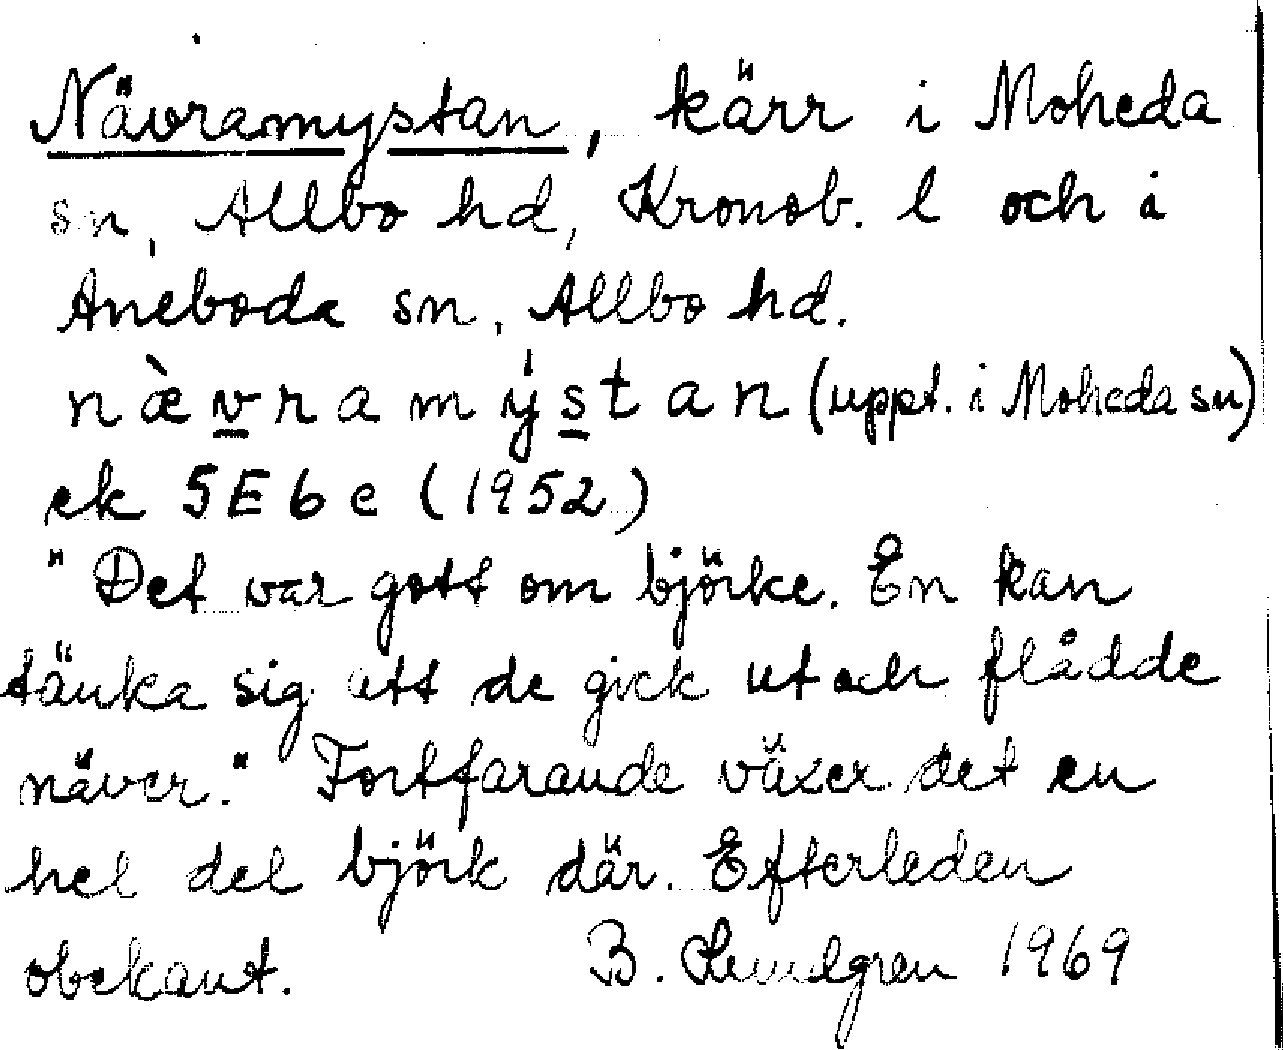 Nävramystan, kärr i Moheda
sn, Allbo hd, Kronob. l och i
Aneboda sn, Allbo hd.
næ̀v̲ramýs̲tan (uppt. i Moheda sn)
ek 5E6e (1952)
"Det var gott om björke. En kan
tänka sig att de gick ut och flådde
näver." Fortfarande växer det en
hel del björk där. Efterleden
obekant. B. Lundgren 1969